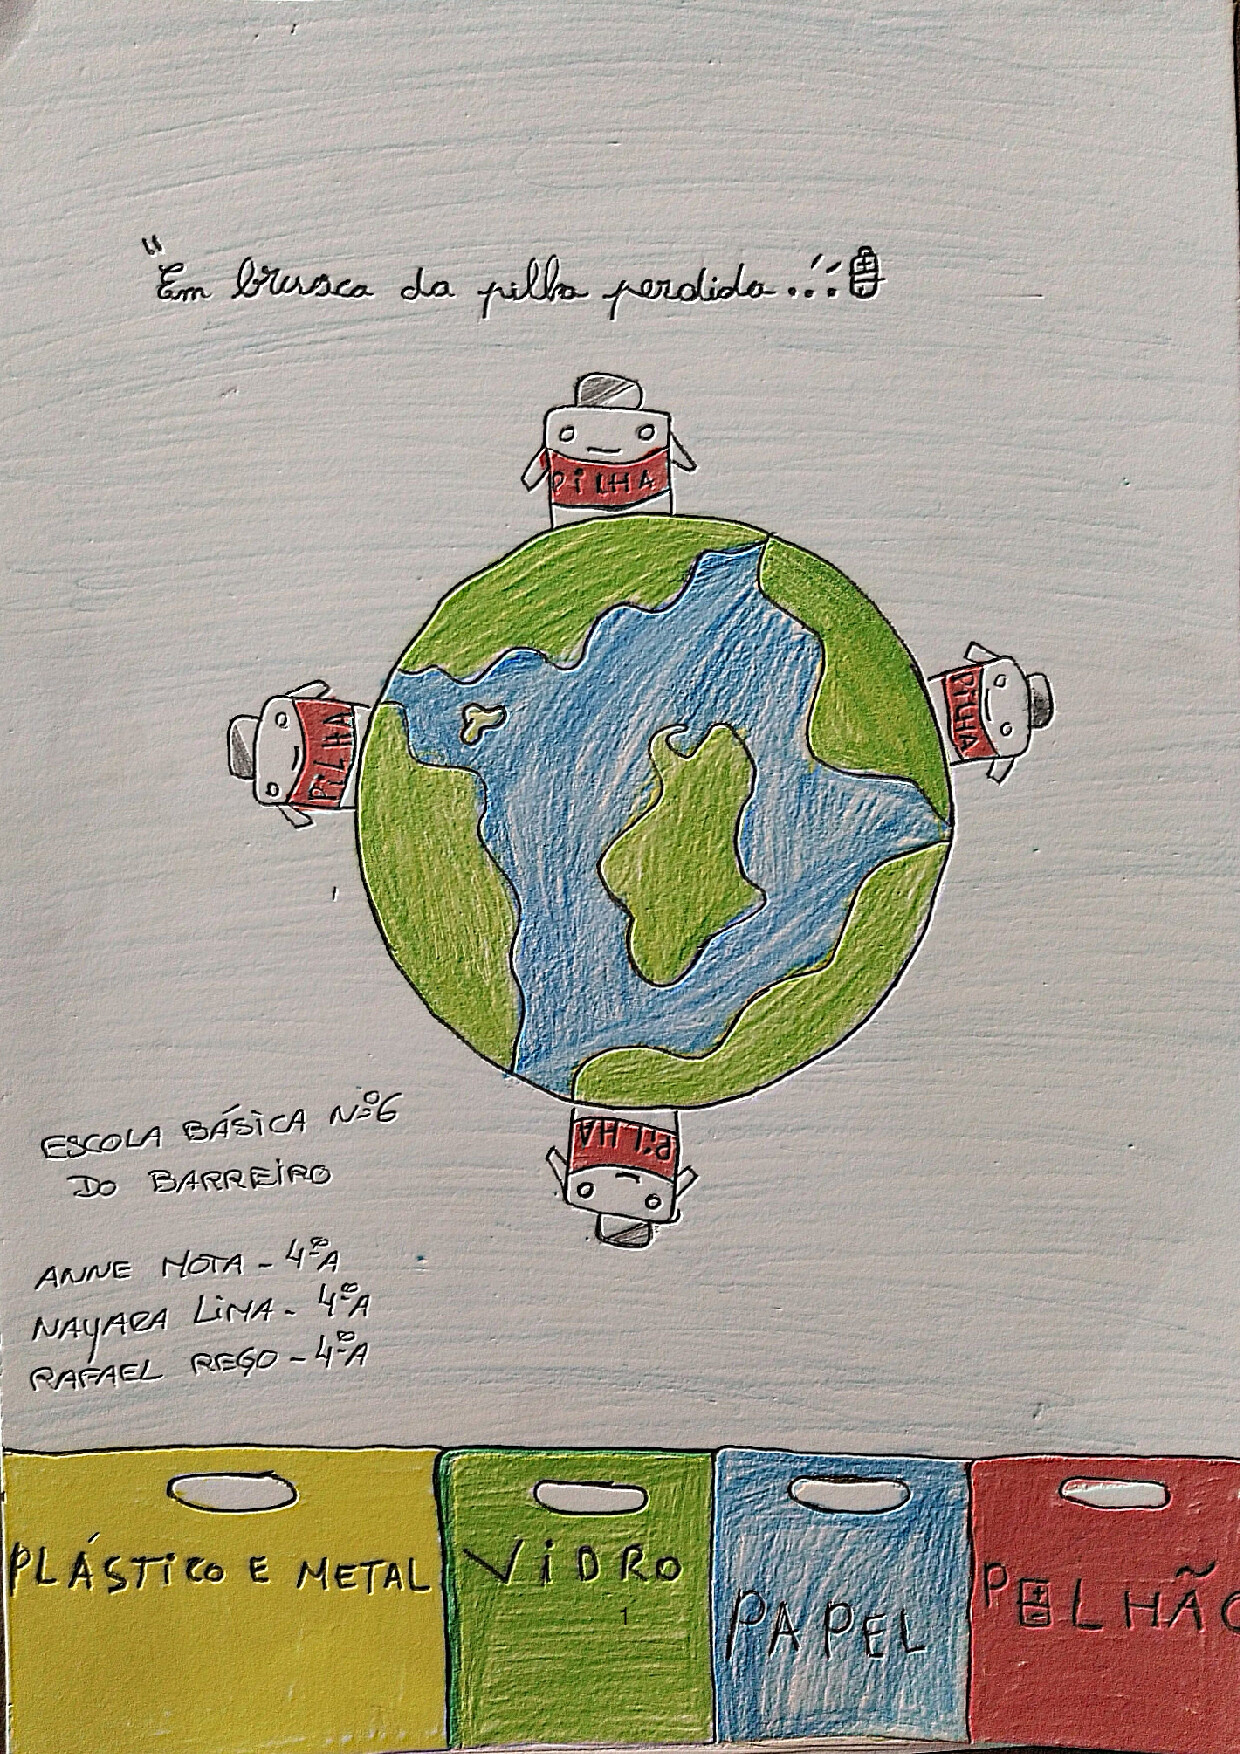 "Em brusca da pilha perdida...
PILHA
PILHA
PILHA
PILHA
ESCOLA BÁSICA Nº6
DO BARREIRO
ANNE MOTA - 4ºA
NAYARA LIMA - 4ºA
RAFAEL REGO - 4ºA
PLÁSTICO E METAL
VIDRO
1
PAPEL
PILHÃO